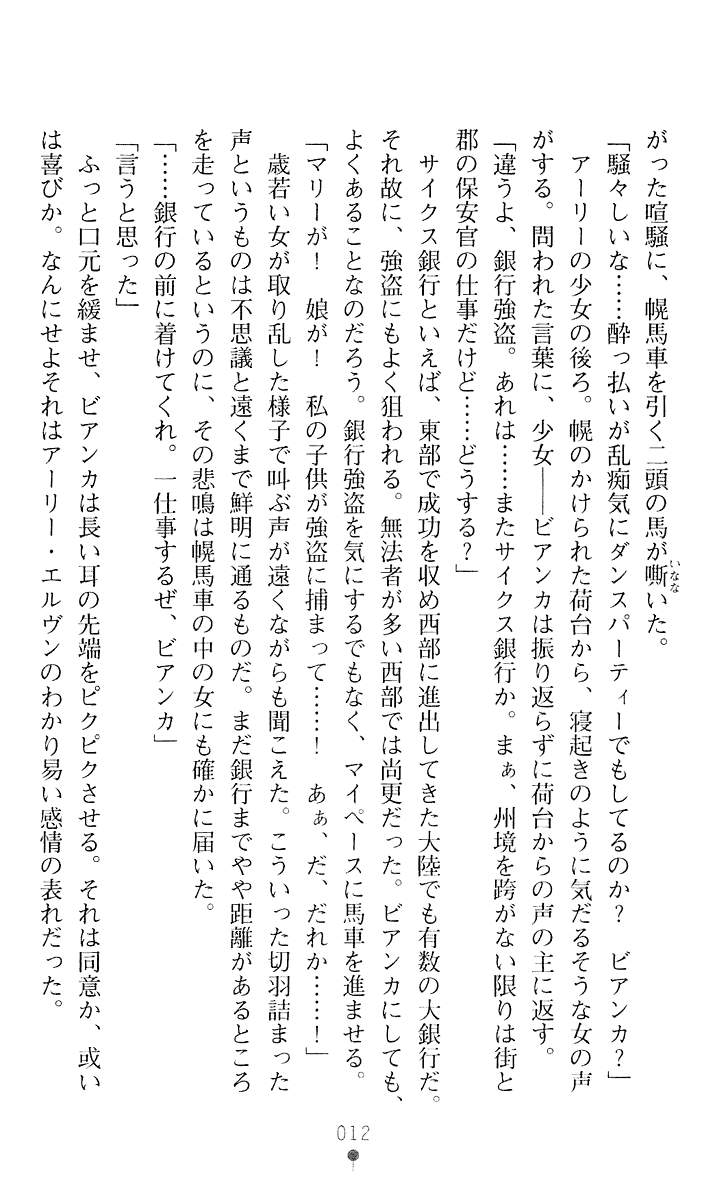 がった喧騒に、幌馬車を引く二頭の馬が嘶いた。
いなな
「騒々しいな……酔っ払いが乱痴気にダンスパーティーでもしてるのか？　ビアンカ？」
　アーリーの少女の後ろ。幌のかけられた荷台から、寝起きのように気だるそうな女の声
がする。問われた言葉に、少女――ビアンカは振り返らずに荷台からの声の主に返す。
「違うよ、銀行強盗。あれは……またサイクス銀行か。まぁ、州境を跨がない限りは街と
郡の保安官の仕事だけど……どうする？」
　サイクス銀行といえば、東部で成功を収め西部に進出してきた大陸でも有数の大銀行だ。
それ故に、強盗にもよく狙われる。無法者が多い西部では尚更だった。ビアンカにしても、
よくあることなのだろう。銀行強盗を気にするでもなく、マイペースに馬車を進ませる。
「マリーが！　娘が！　私の子供が強盗に捕まって……！　あぁ、だ、だれか……！」
　歳若い女が取り乱した様子で叫ぶ声が遠くながらも聞こえた。こういった切羽詰まった
声というものは不思議と遠くまで鮮明に通るものだ。まだ銀行までやや距離があるところ
を走っているというのに、その悲鳴は幌馬車の中の女にも確かに届いた。
「……銀行の前に着けてくれ。一仕事するぜ、ビアンカ」
「言うと思った」
　ふっと口元を緩ませ、ビアンカは長い耳の先端をピクピクさせる。それは同意か、或い
は喜びか。なんにせよそれはアーリー・エルヴンのわかり易い感情の表れだった。
012